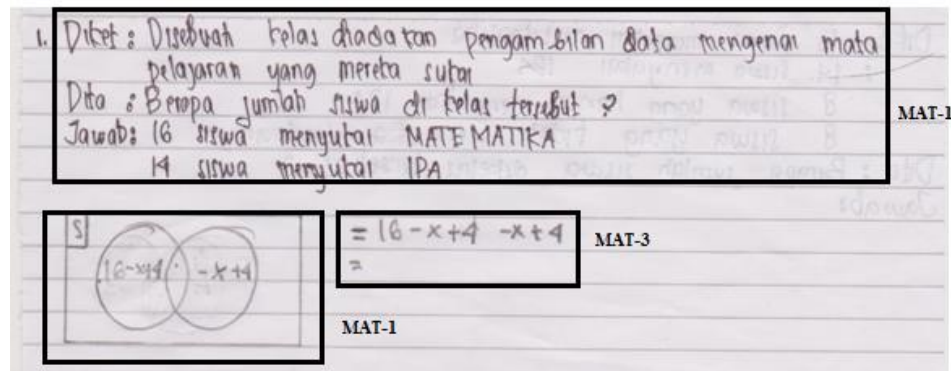 1. Diket : Disebuah kelas diadakan pengambilan data mengenai mata
pelajaran yang mereka sukai
Dita : Berapa jumlah siswa di kelas tersebut ?
Jawab : 16 siswa menyukai MATEMATIKA
14 siswa menyukai IPA
MAT-1
S
16-x+4 -x+4
MAT-1
= 16 - x + 4 - x + 4
=
MAT-3